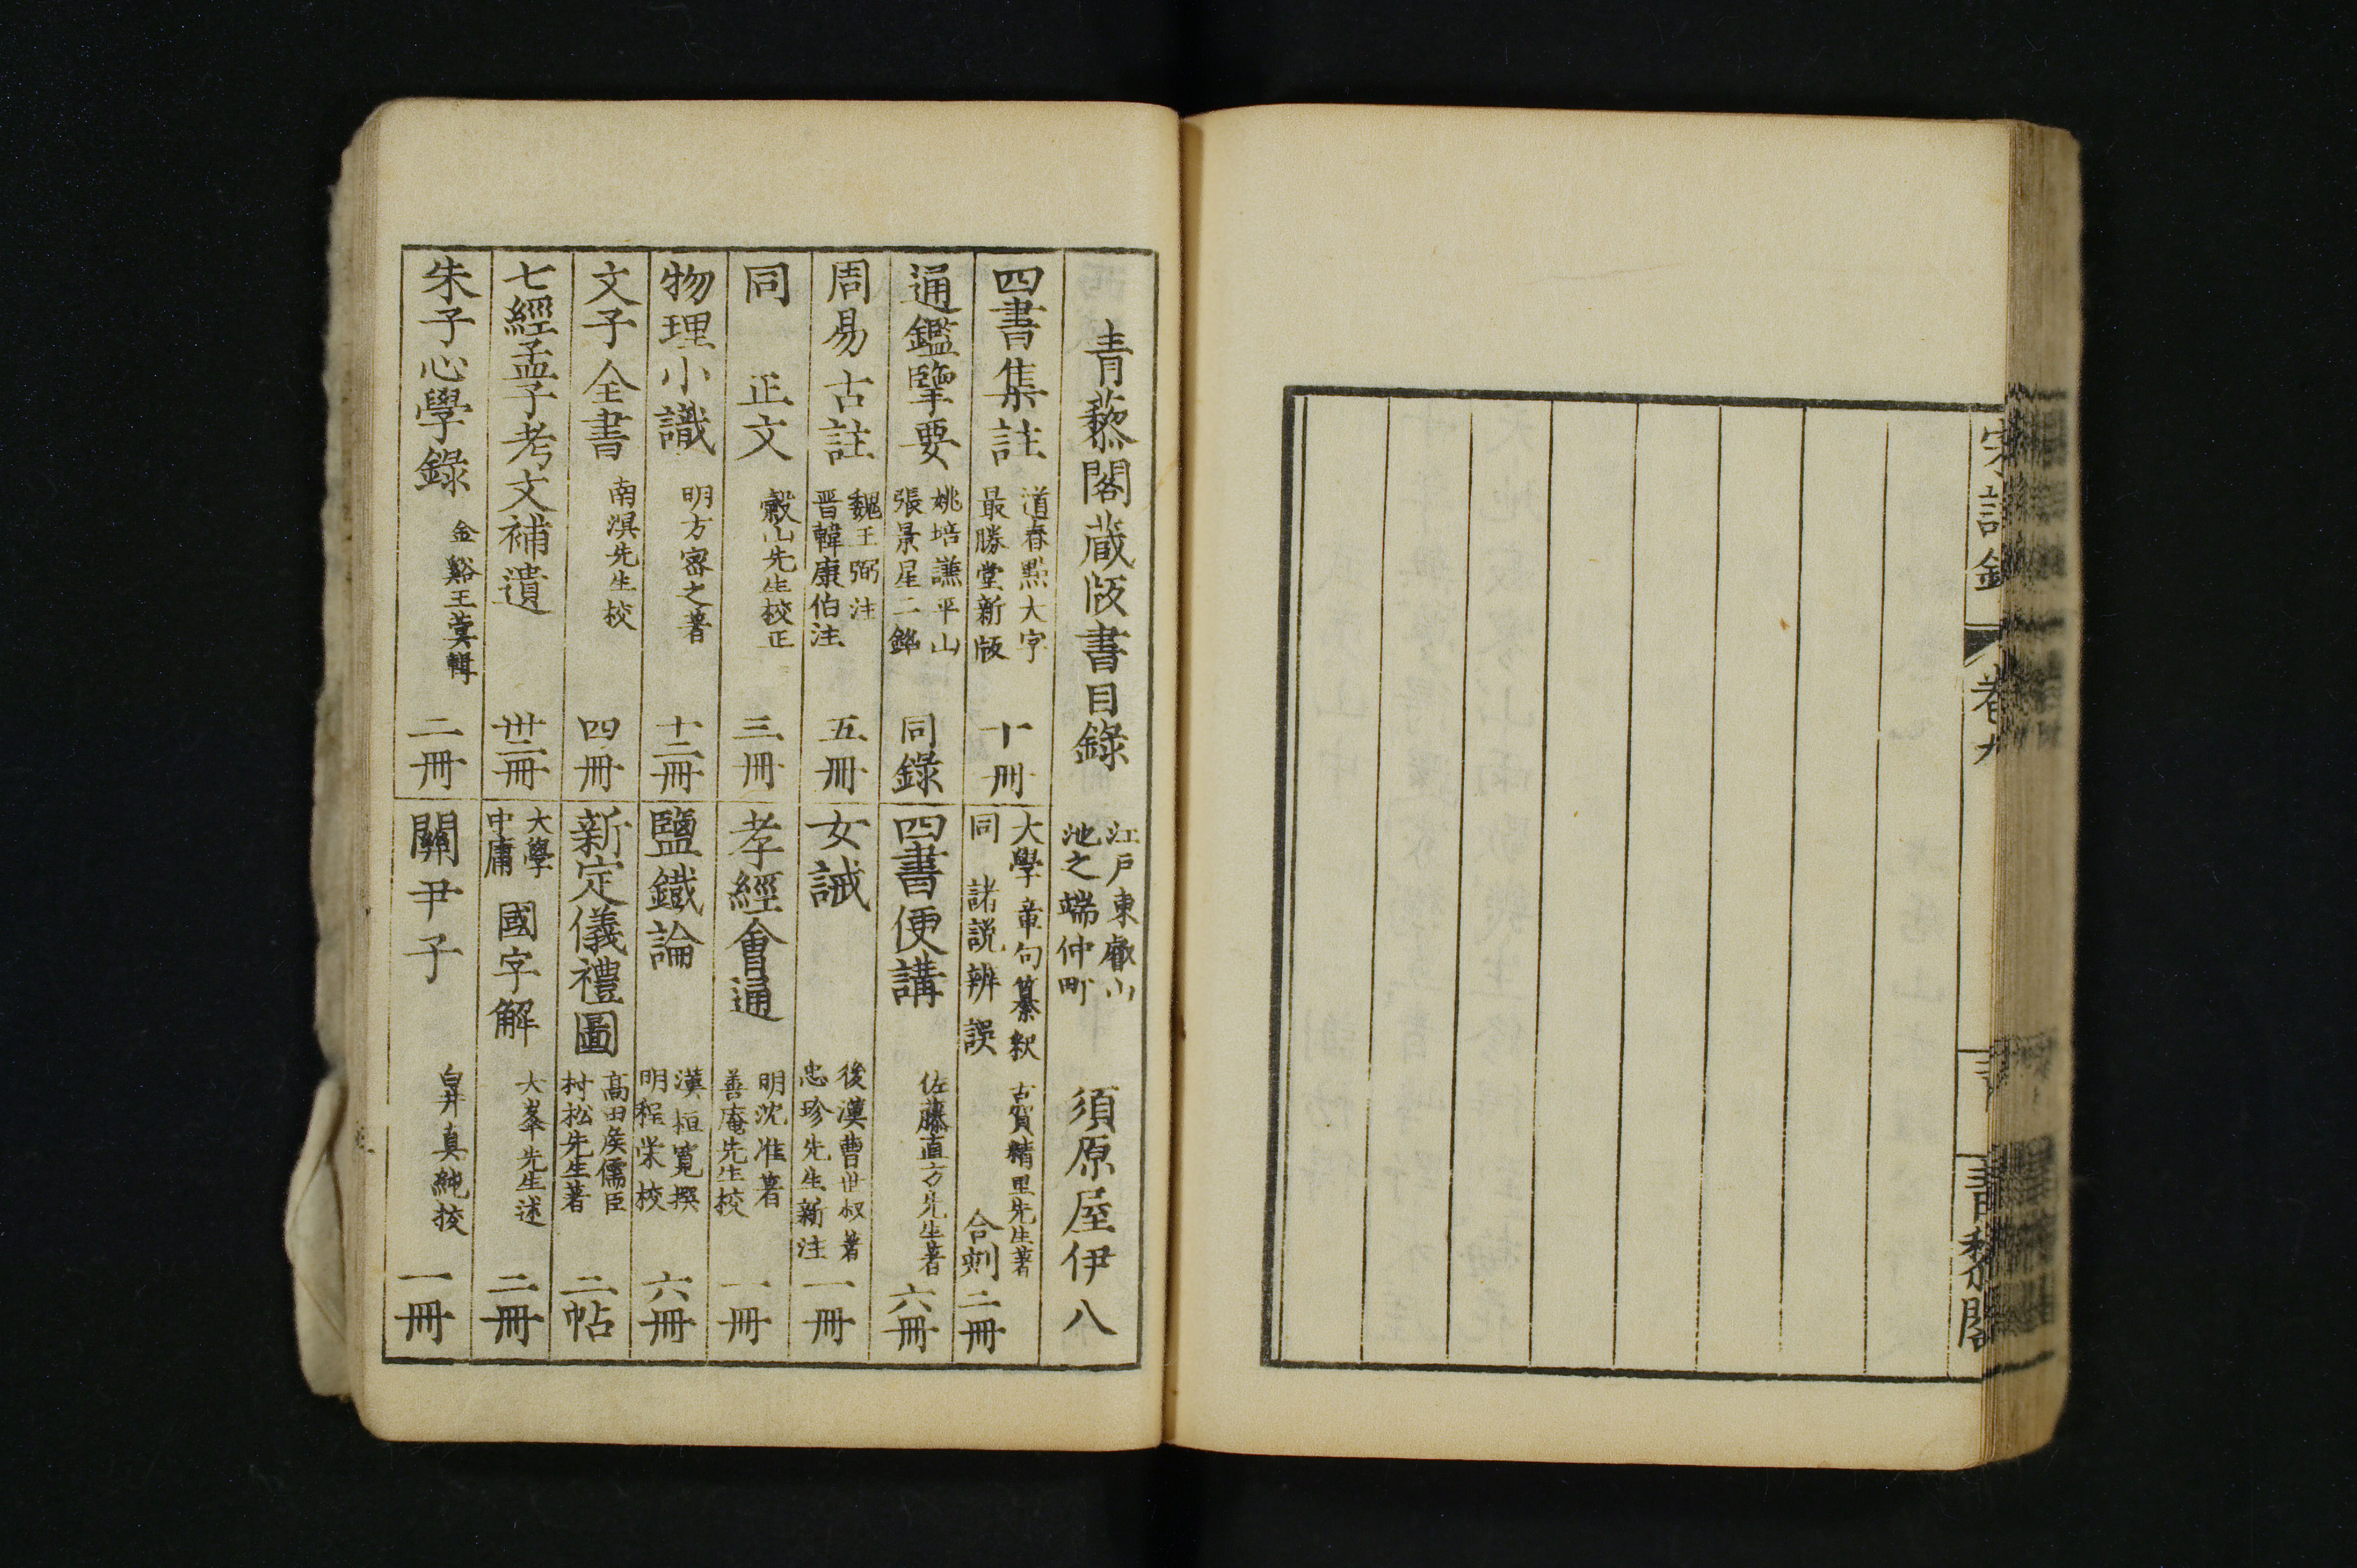 宋詩鈔
卷九
青藜閣
青藜閣蔵版書目錄
江戸東叡山
池之端仲町
須原屋伊八
四書集註
道春點大字
最勝堂新版
十冊
大學章句纂釈
同 諸説辨誤
古賀精里先生著
合刻
二冊
通鑑擥要
姚培謙平山
張景星二銘
同錄
四書便講
佐藤直方先生著
六冊
周易古註
魏王弼注
晋韓康伯注
五冊
女誡
後漢曹世叔著
忠珍先生新注
一冊
同 正文
穀山先生校正
三冊
孝經會通
明沈淮著
善庵先生校
一冊
物理小識
明方密之著
十二冊
鹽鐵論
漢桓寬撰
明程栄校
六冊
文子全書
南溟先生校
四冊
新定儀禮圖
高田矦儒臣
村松先生著
二帖
七經孟子考文補遺
卅二冊
大學
中庸
國字解
大峯先生述
二冊
朱子心學錄
金谿王蓂輯
二冊
關尹子
皐真純挍
一冊